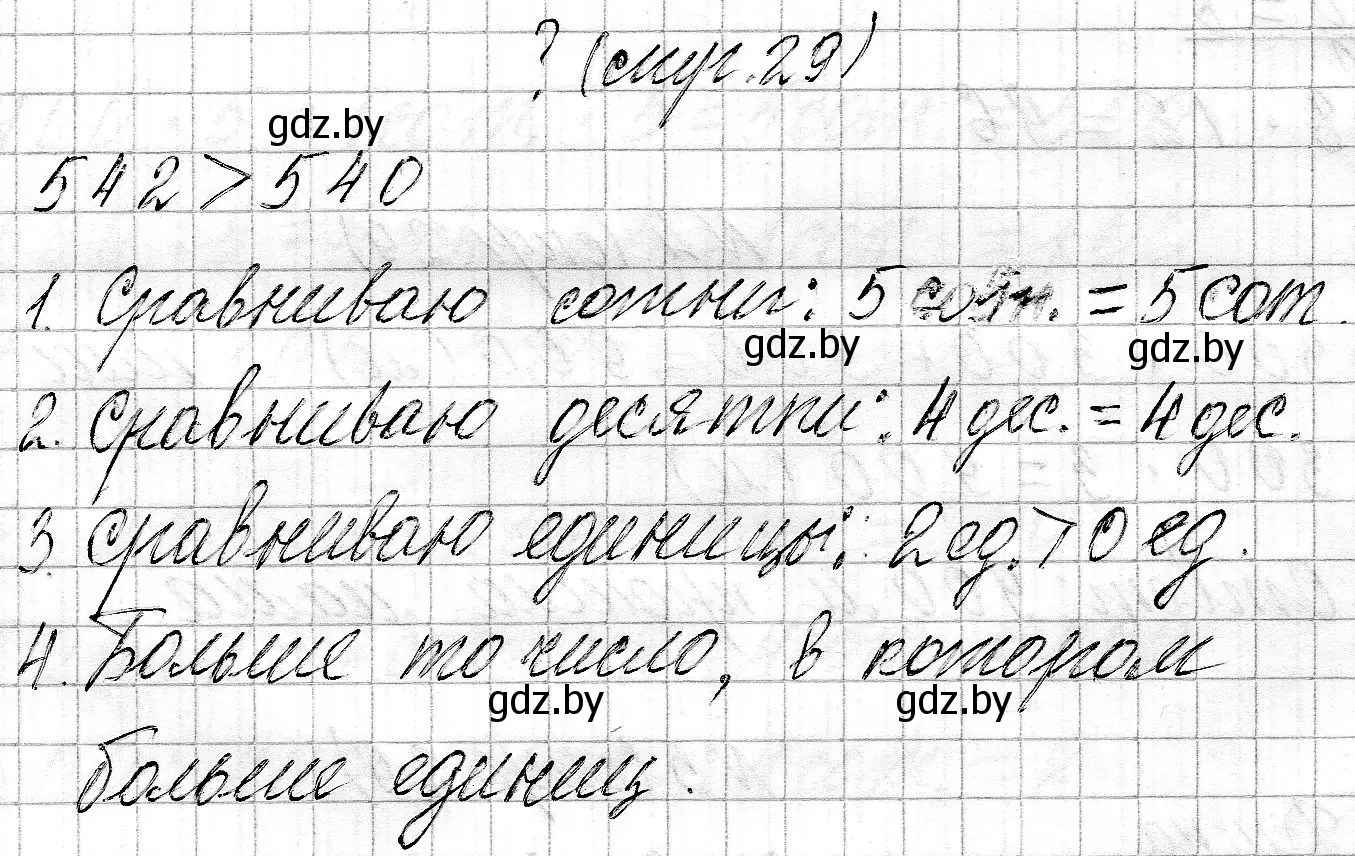 ? (стр. 29)
gdz.by
542 > 540
1. Сравниваю сотни: 5 сотн. = 5 сот.
gdz.by gdz.by
2. Сравниваю десятки: 4 дес. = 4 дес.
3. Сравниваю единицы: 2 ед. > 0 ед.
4. Больше то число, в котором
gdz.by gdz.by
больше единиц.